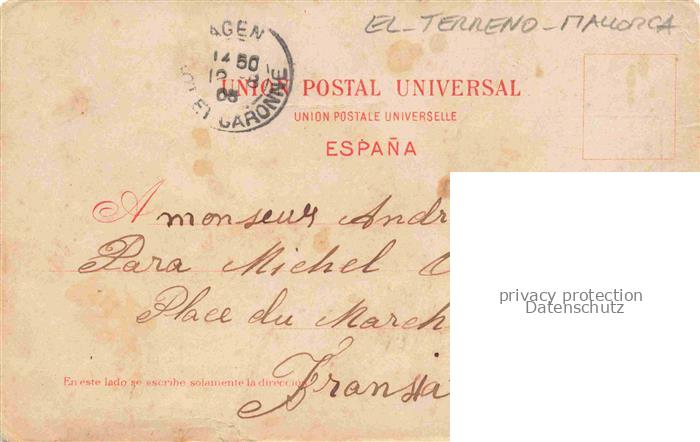 EL-TERRENO-MALLORCA
AGEN
1450
ET GARONNE
UNION POSTAL UNIVERSAL
UNION POSTALE UNIVERSELLE
ESPAÑA
A monseur Andr
Para Michel
Place du March
En este lado se escribe solamente la direccion
Fransia
privacy protection
Datenschutz